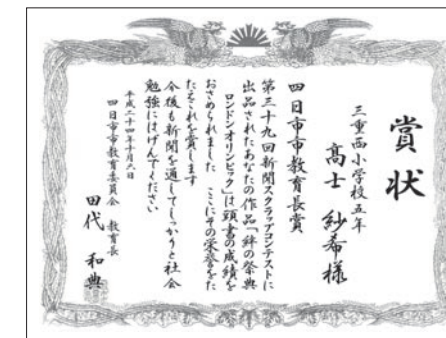 賞状
三重西小学校五年
髙士 紗希様
四日市市教育長賞
第三十九回新聞スクラップコンテストに
出品されたあなたの作品「絆の祭典
ロンドンオリンピック」は頭書の成績を
おさめられました ここにその栄誉をた
たえこれを賞します
今後も新聞を通してしっかりと社会
勉強にはげんでください
平成二十四年十月六日
四日市市教育委員会 教育長
田代 和典